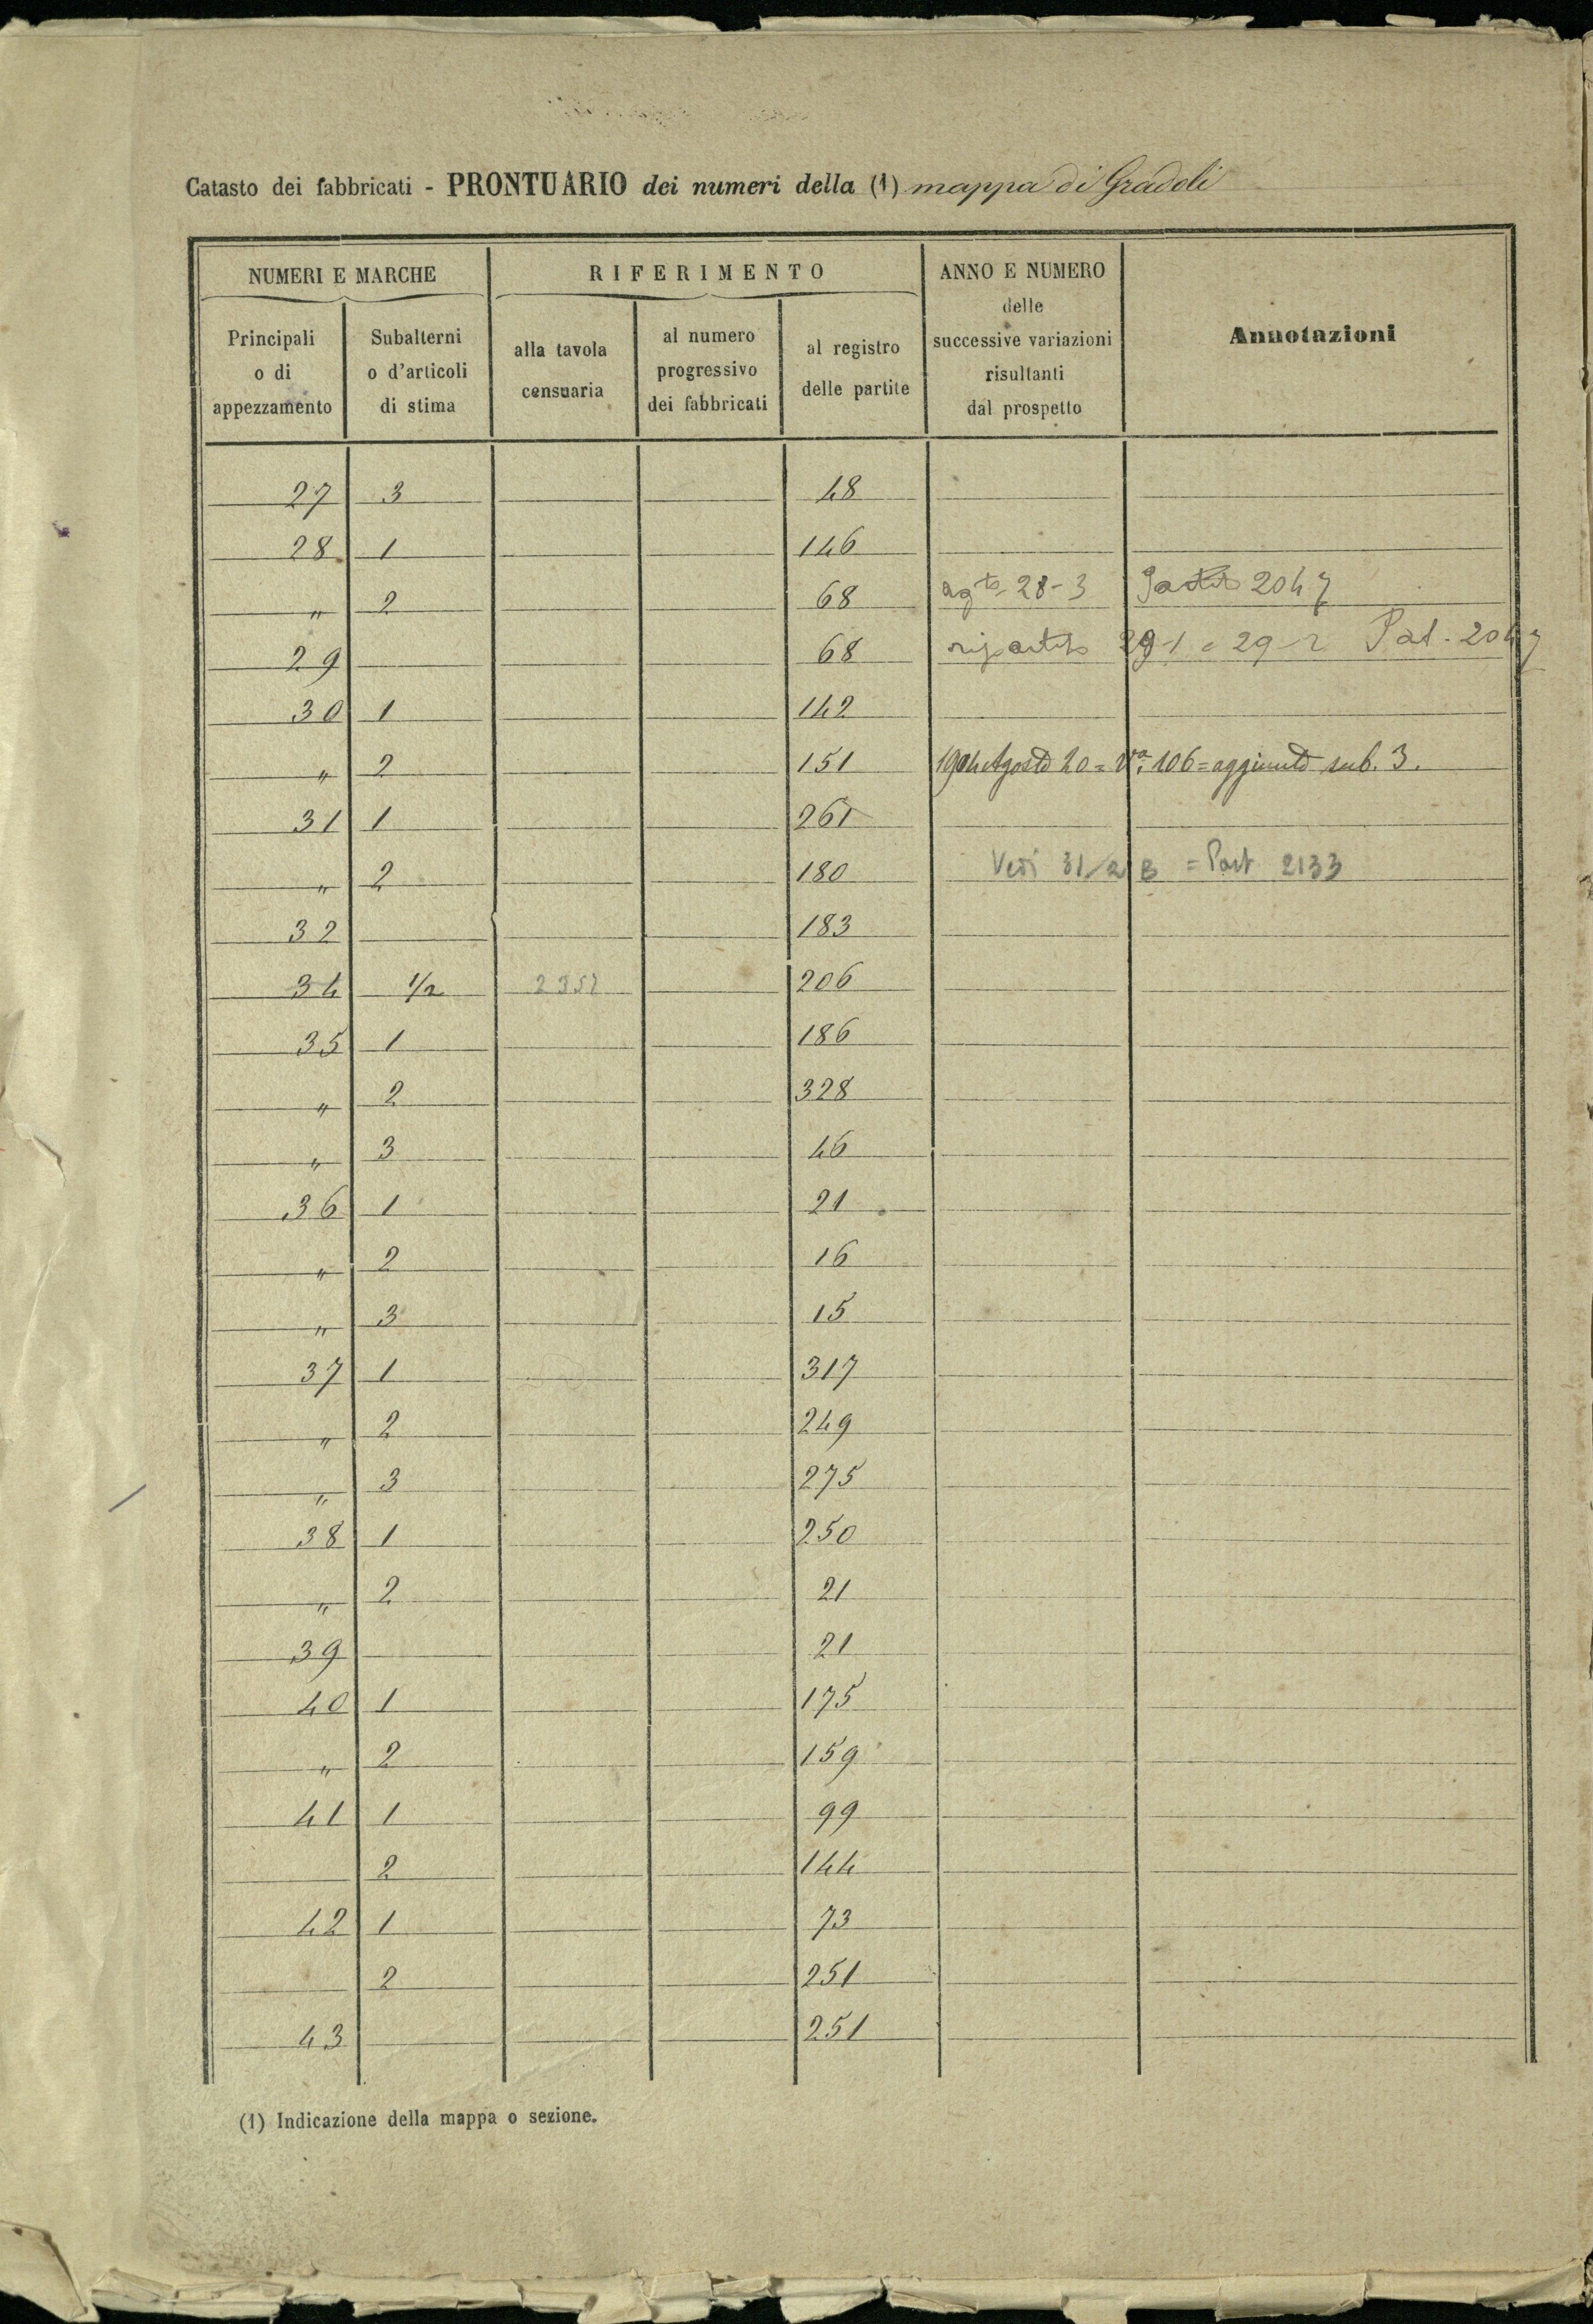 Catasto dei fabbricati - PRONTUARIO dei numeri della (1) mappa di Gradoli
NUMERI E MARCHE
Principali o di appezzamento
Subalterni o d'articoli di stima
RIFERIMENTO
alla tavola censuaria
al numero progressivo dei fabbricati
al registro delle partite
ANNO E NUMERO delle successive variazioni risultanti dal prospetto
Annotazioni
27 3 48
28 1 146
" 2 68 agto 28-3 Partita 2047
29 68 29-1 e 29-2 Pat. 2047
30 1 142
" 2 151 1904 Agosto 20 = Va. 106 = aggiunto sub. 3.
31 1 261
" 2 180 Vedi 31/2 B = Part 2133
32 183
34 1/2 2352 206
35 1 186
" 2 328
" 3 46
36 1 21
" 2 16
" 3 15
37 1 317
" 2 249
" 3 275
38 1 250
" 2 21
39 21
40 1 175
" 2 159
41 1 99
2 144
42 1 73
2 251
43 251
(1) Indicazione della mappa o sezione.